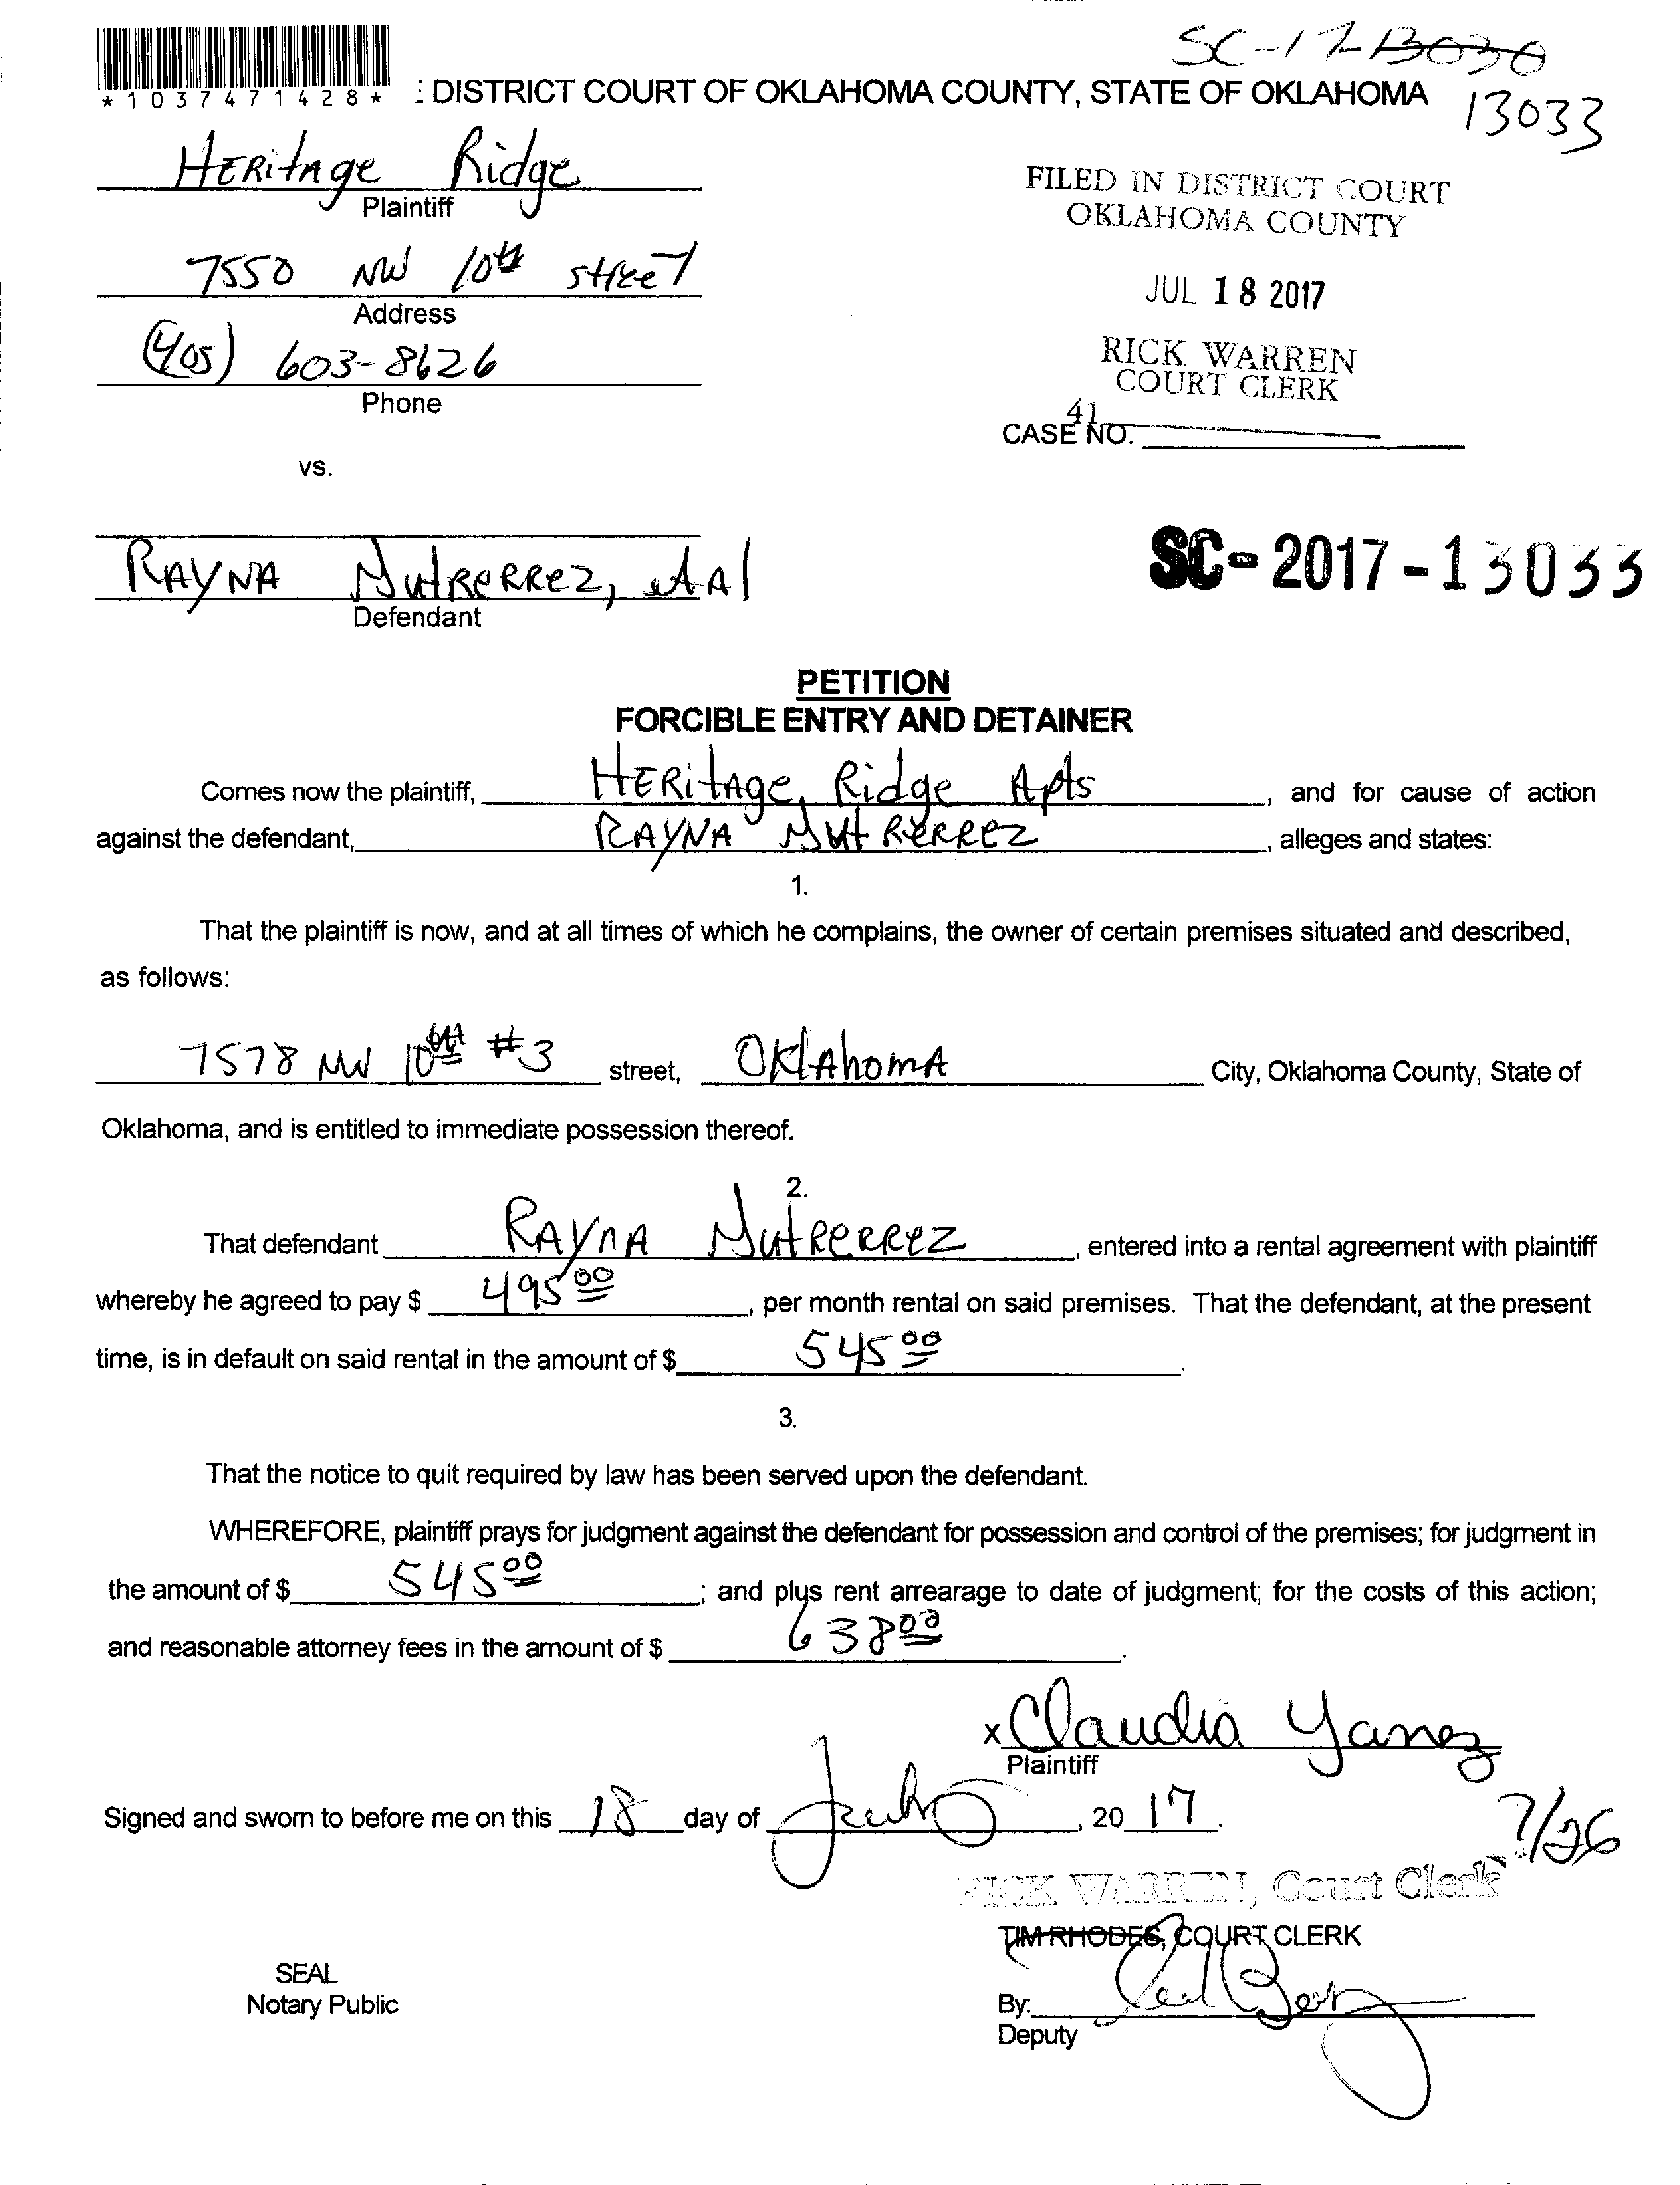 SC-17-13030
*1037471428*
: DISTRICT COURT OF OKLAHOMA COUNTY, STATE OF OKLAHOMA
13033
HERitAge Ridge
Plaintiff
FILED IN DISTRICT COURT
OKLAHOMA COUNTY
7550 NW 10th street
Address
JUL 18 2017
(405) 603-8626
Phone
RICK WARREN
COURT CLERK
41
CASE NO.
vs.
RAYNA NutReRRez, etAl
Defendant
SC-2017-13033
PETITION
FORCIBLE ENTRY AND DETAINER
Comes now the plaintiff, HERitAge Ridge Apts, and for cause of action
against the defendant, RAYNA NutReRRez, alleges and states:
1.
That the plaintiff is now, and at all times of which he complains, the owner of certain premises situated and described,
as follows:
7578 NW 10th #3 street, OklAhomA City, Oklahoma County, State of
Oklahoma, and is entitled to immediate possession thereof.
2.
That defendant RAYNA NutReRRez, entered into a rental agreement with plaintiff
whereby he agreed to pay $ 495 00, per month rental on said premises. That the defendant, at the present
time, is in default on said rental in the amount of $ 545 00.
3.
That the notice to quit required by law has been served upon the defendant.
WHEREFORE, plaintiff prays for judgment against the defendant for possession and control of the premises; for judgment in
the amount of $ 545 00; and plus rent arrearage to date of judgment; for the costs of this action;
and reasonable attorney fees in the amount of $ 638 00.
x Claudia Yanez
Plaintiff
Signed and sworn to before me on this 18 day of July, 20 17.
7/26
RICK WARREN, Court Clerk
TIM RHODES, COURT CLERK
SEAL
Notary Public
By:
Deputy